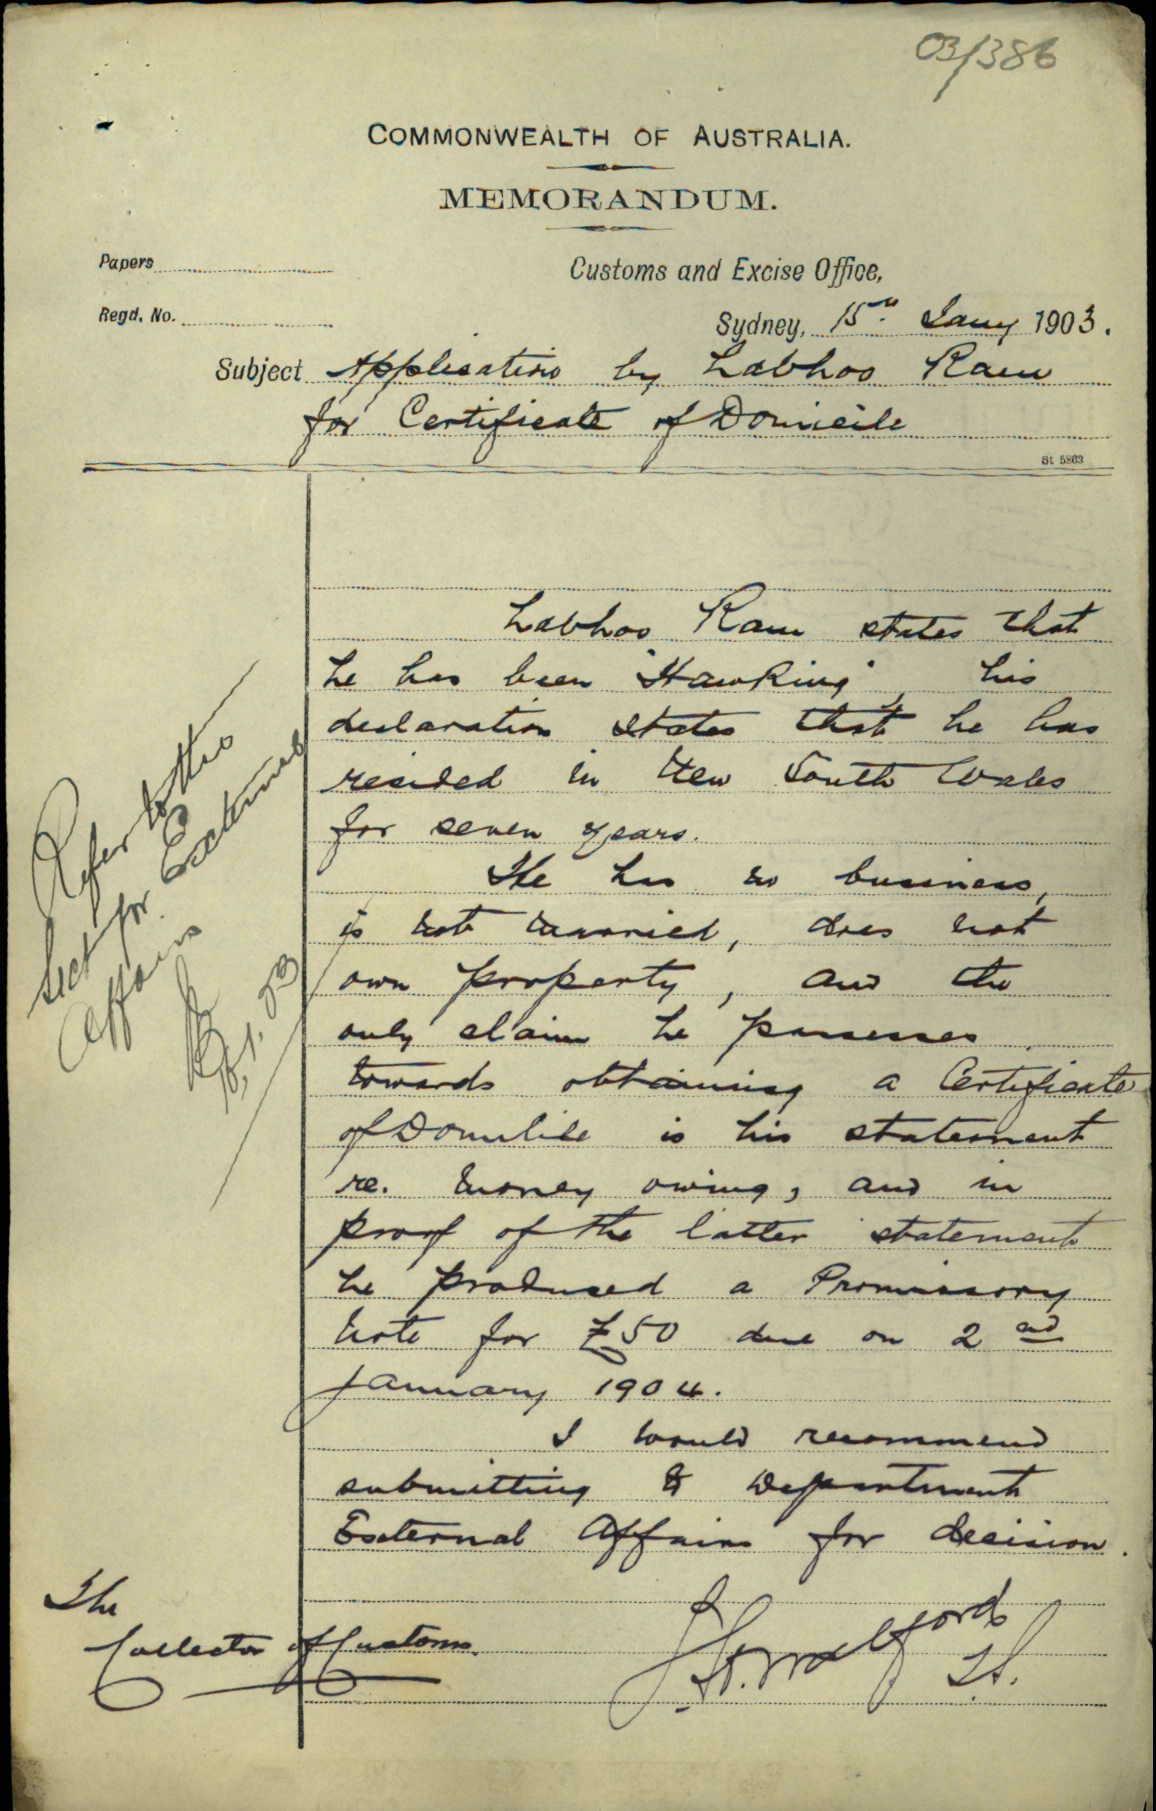 03/386
COMMONWEALTH OF AUSTRALIA.
MEMORANDUM.
Papers
Customs and Excise Office,
Regd. No.
Sydney, 15th Jany 1903.
Subject Application by Labhoo Ram
for Certificate of Domicile
St 5863
Labhoo Ram states that
he has been "Hawking", his
declaration states that he has
resided in New South Wales
for seven years.
He has no business,
is not married, does not
own property, and the
only claim he possesses
towards obtaining a Certificate
of Domicile is his statement
re. money owing, and in
proof of the latter statement
he produced a Promissory
Note for £50 due on 2nd
January 1904.
I would recommend
submitting to Department
External Affairs for decision.
Refer to the
Sect for External
Affairs
.1.03
The
Collector of Customs.